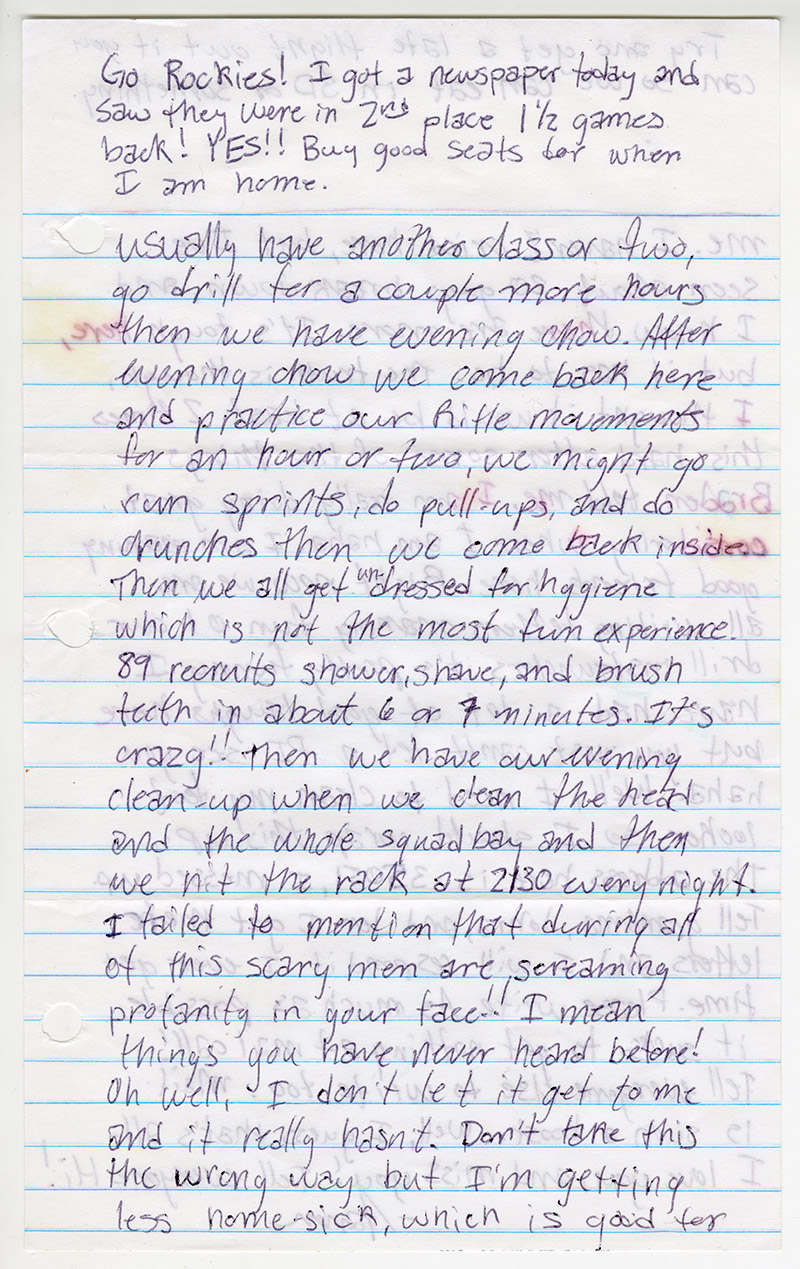 Go Rockies! I got a newspaper today and
saw they were in 2nd place 1½ games
back! YES!! Buy good seats for when
I am home.
usually have another class or two,
go drill for a couple more hours
then we have evening chow. After
evening chow we come back here
and practice our Rifle movements
for an hour or two, we might go
run sprints, do pull-ups, and do
crunches then we come back inside.
Then we all get un-dressed for hygiene
which is not the most fun experience.
89 recruits shower, shave, and brush
teeth in about 6 or 7 minutes. It's
crazy!! Then we have our evening
clean-up when we clean the head
and the whole squadbay and then
we hit the rack at 2130 every night.
I failed to mention that during all
of this scary men are screaming
profanity in your face!! I mean
things you have never heard before!
Oh well, I don't let it get to me
and it really hasn't. Don't take this
the wrong way but I'm getting
less home-sick, which is good for